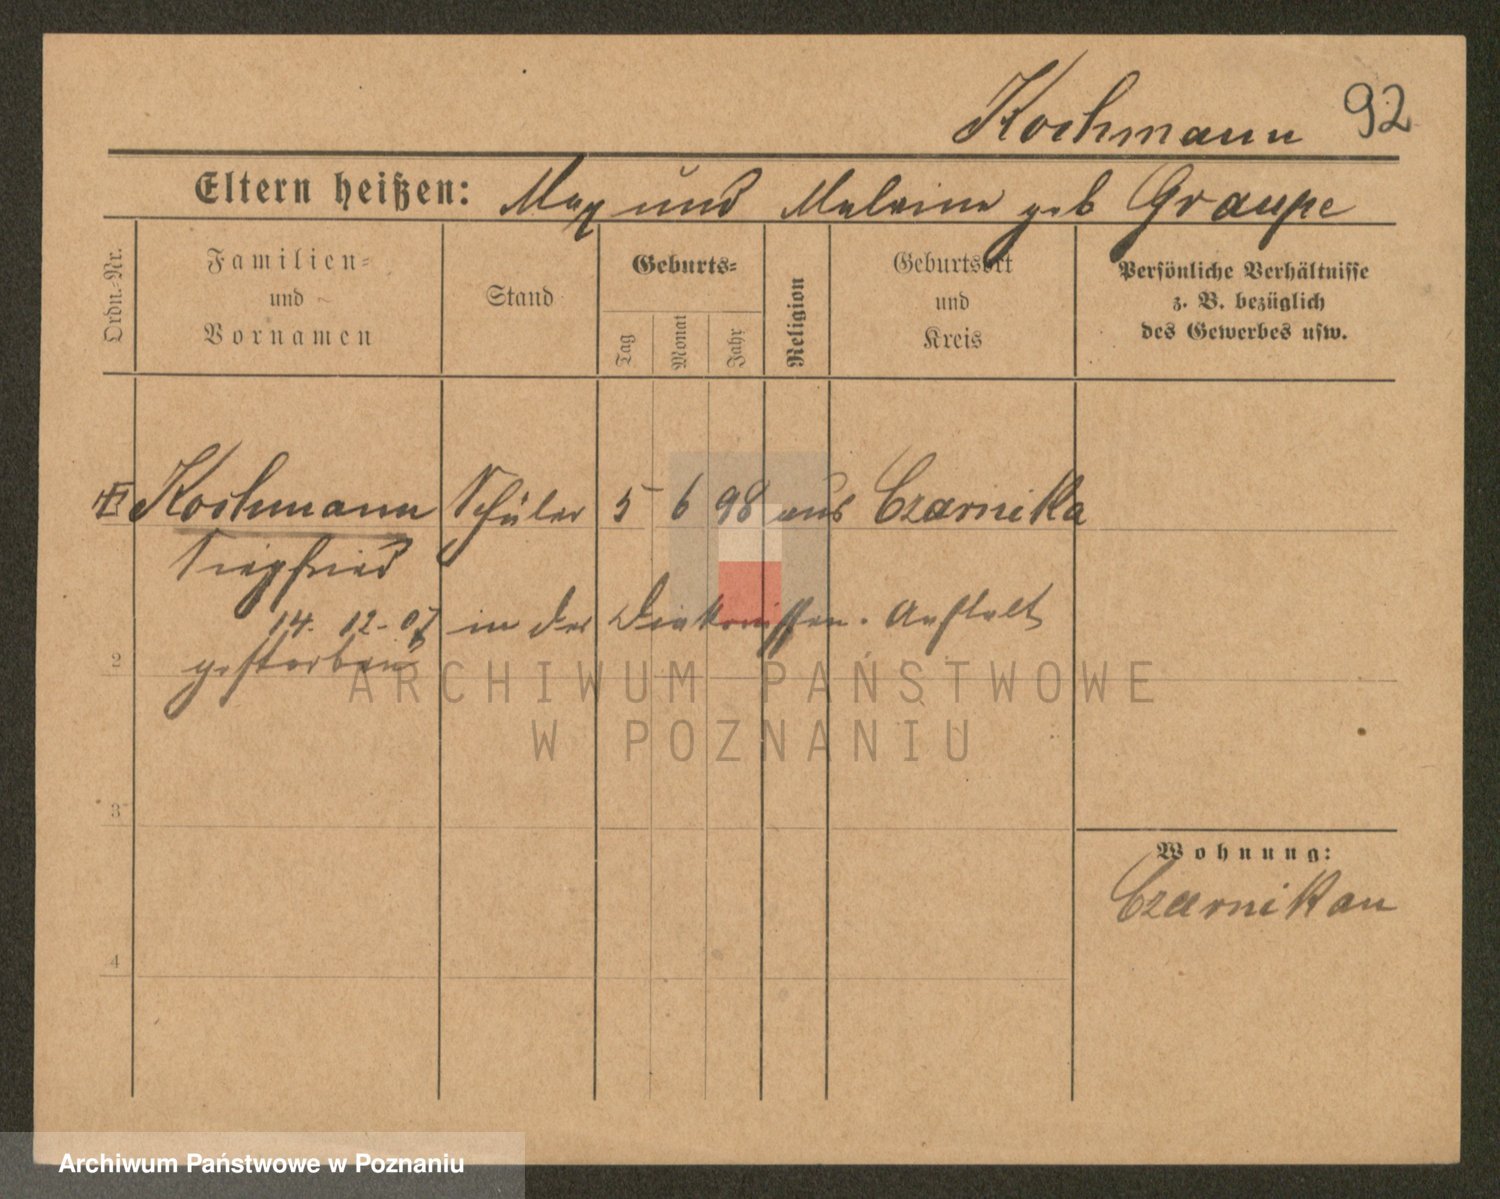 Kochmann 92
Eltern heißen: Max und Malwine geb Graupe
Ordn.-Nr.
Familien- und Vornamen
Stand
Geburts-
Tag
Monat
Jahr
Religion
Geburtsort und Kreis
Persönliche Verhältnisse
z. B. bezüglich
des Gewerbes usw.
Kochmann Schüler 5 6 98 aus Czarnika
Siegfried
14. 12. 07 in der Diakonissen. Anstalt
gestorben
2
3
Wohnung:
Czarnikau
4
ARCHIWUM PAŃSTWOWE
W POZNANIU
Archiwum Państwowe w Poznaniu